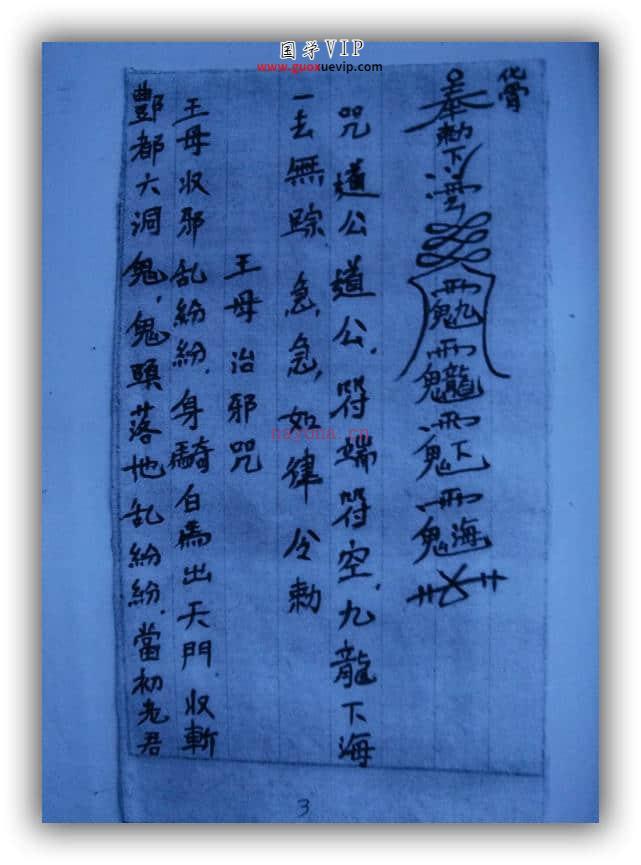 国学VIP
www.guoxuevip.com
化骨
奉勅下
九龍下海
咒道公道公,符端符空,九龍下海
一去無踪急,急,如律令勅
王母治邪咒
王母收邪乱紛紛,身騎白馬出天門收斬
酆都六洞鬼,鬼頭落地乱紛紛,當初老君
nayona.cn
3